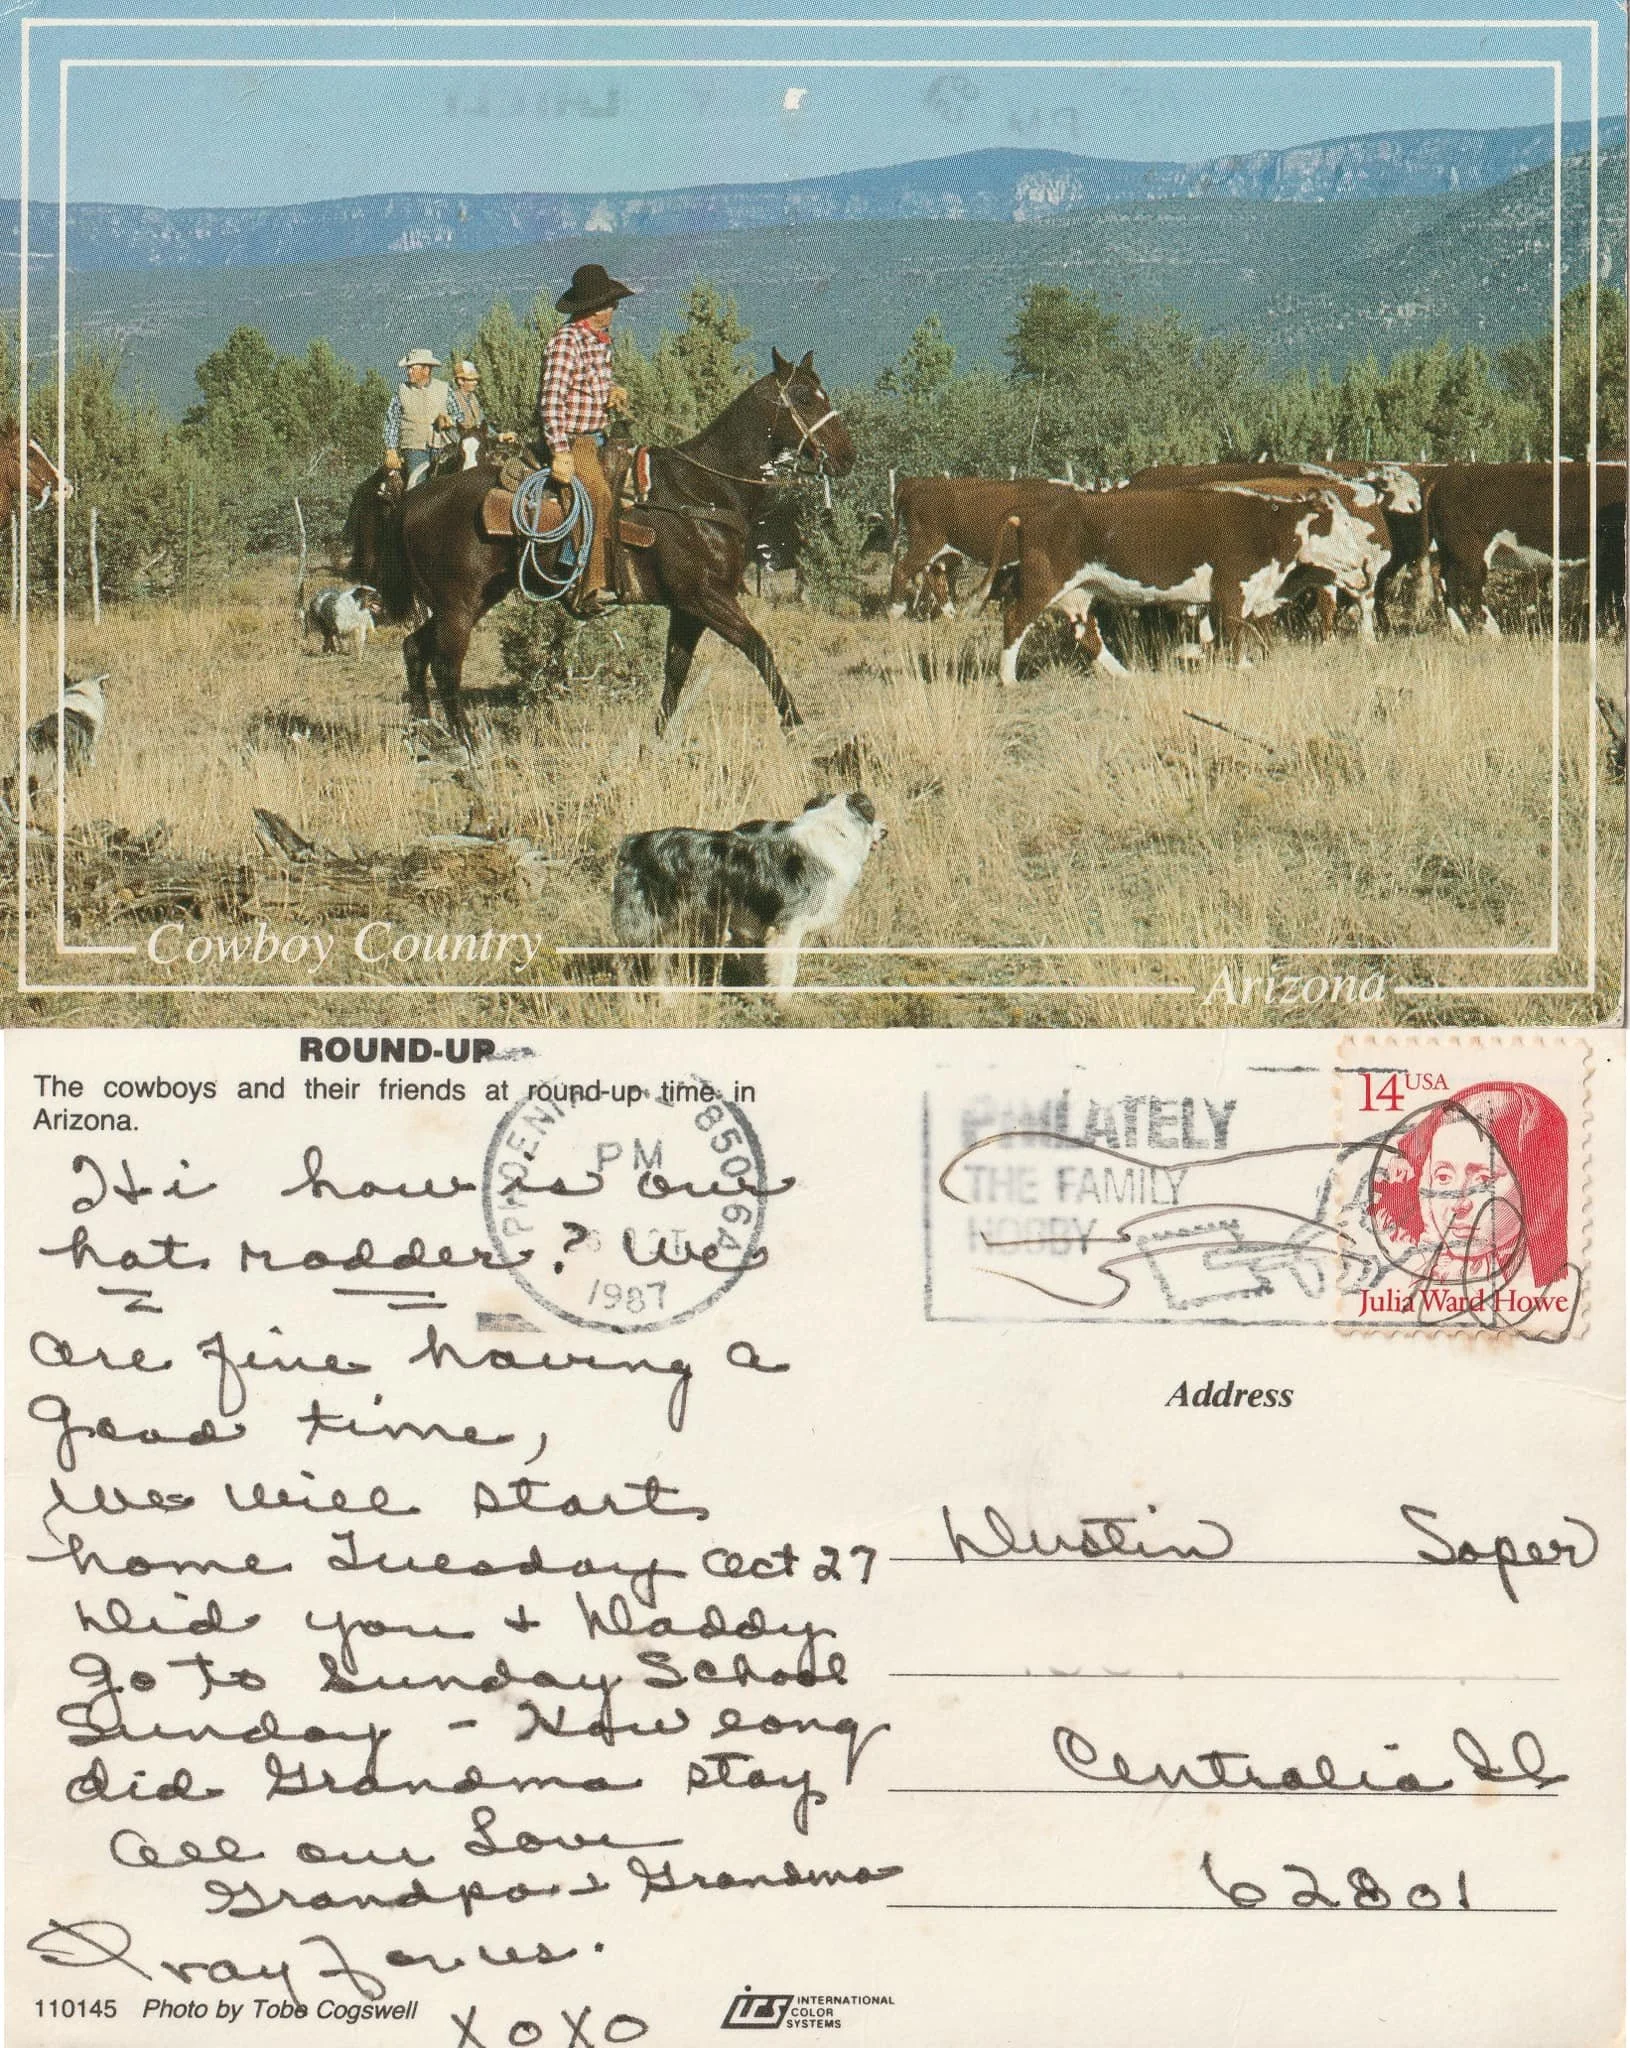 Cowboy Country
Arizona
ROUND-UP
The cowboys and their friends at round-up time in
Arizona.
Hi how is our
hot rodder? We
are fine having a
good time,
We will start
home Tuesday Oct 27
Did you + Daddy
go to Sunday School
Sunday - How long
did Grandma stay
All our Love
Grandpa + Grandma
Pray for us.
XOXO
110145 Photo by Tobe Cogswell
irs INTERNATIONAL
COLOR
SYSTEMS
PHOENIX 85026
PM
OCT
1987
PHILATELY
THE FAMILY
HOBBY
14 USA
Julia Ward Howe
Address
Dustin Soper
Centralia Il
62801